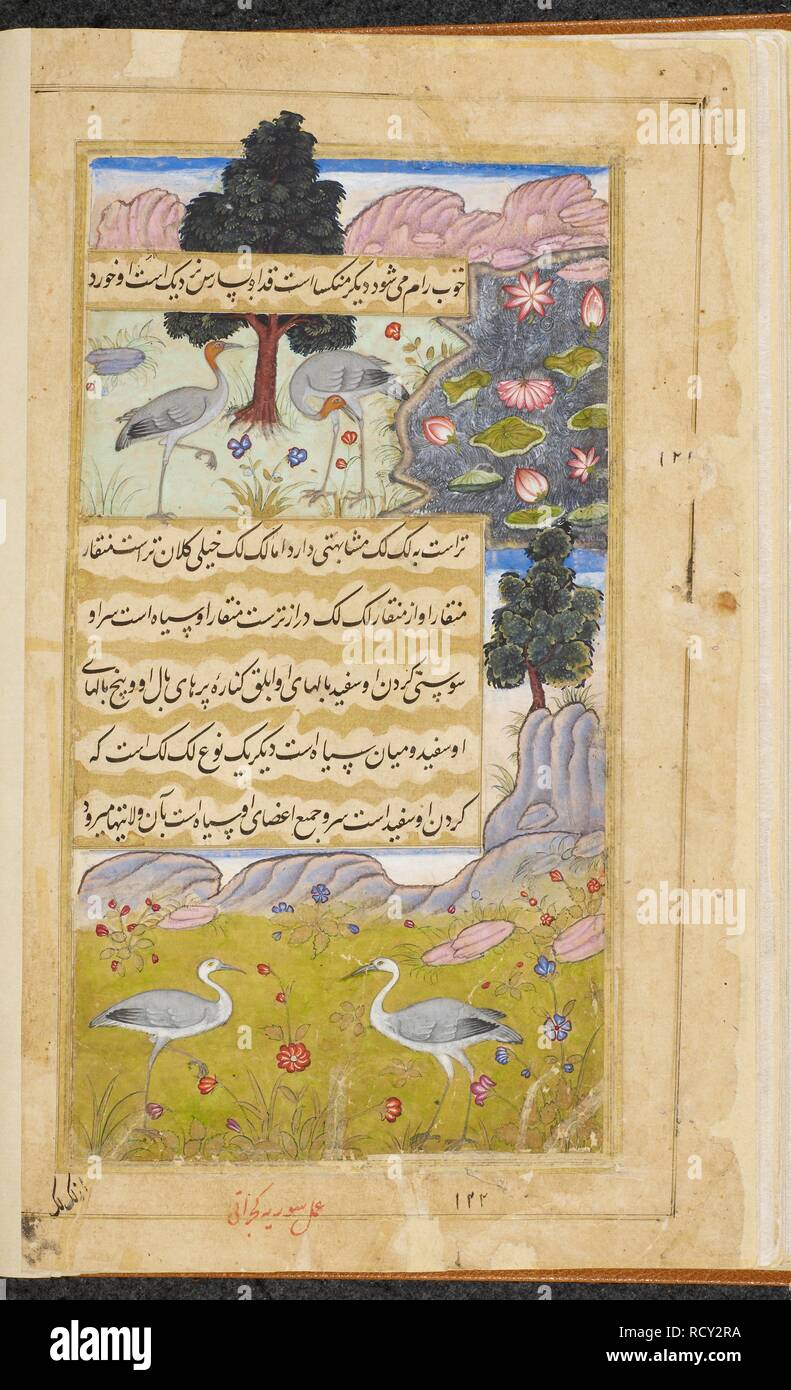 خوب رام می شود دیگر منکسا است قد او پارس نزدیک است او خورد
تر است به لک لک مشابهتی دارد اما لک لک خیلی کلان تر است منقار
منقار او از منقار لک لک دراز ترست منقار او سیاه است سر او
سوسنی گردن او سفید بالهای او ابلق کناره پرهای بال او و پنج بالهای
او سفید و میان سیاه است دیگر یک نوع لک لک است که
گردن او سفید است سر و جمیع اعضای او سیاه است بآن ولایتها میرود
۱۲۱
از لک لک
عمل سوریه گجراتی
۱۲۲
alamy
Image ID: RCY2RA
www.alamy.com